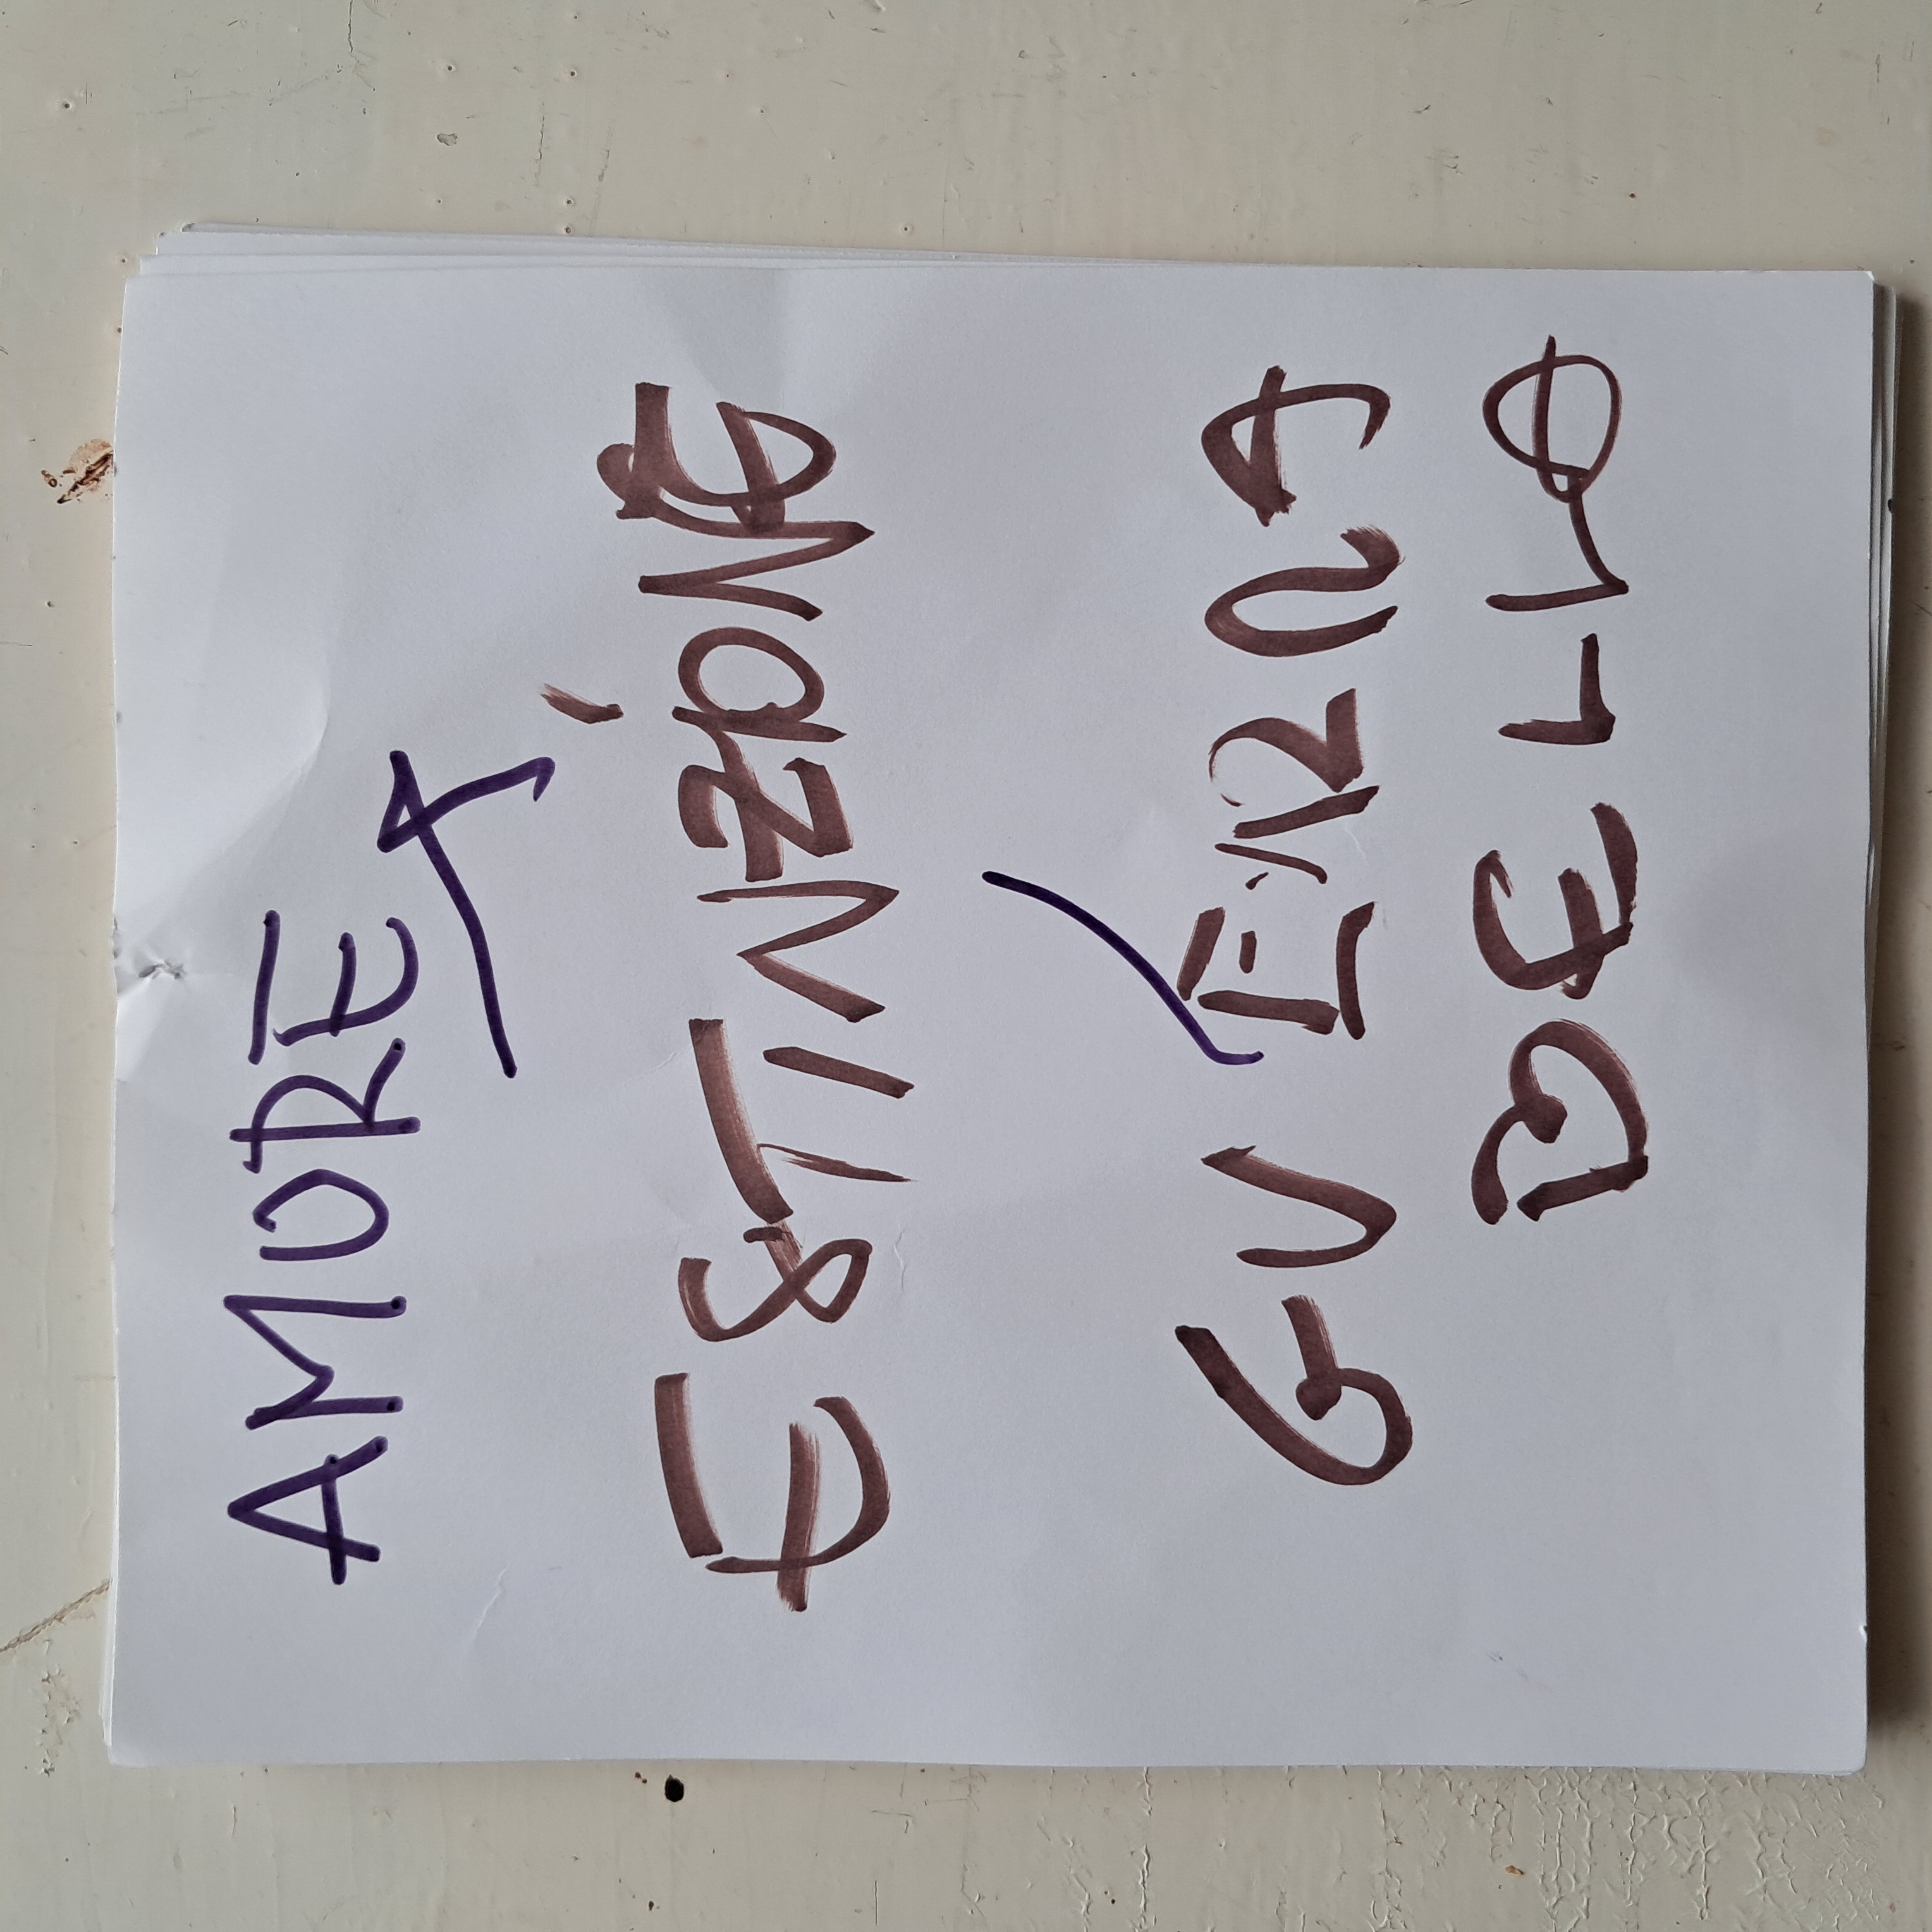 AMORE
ESTINZIONE
GUERRA
DELLO